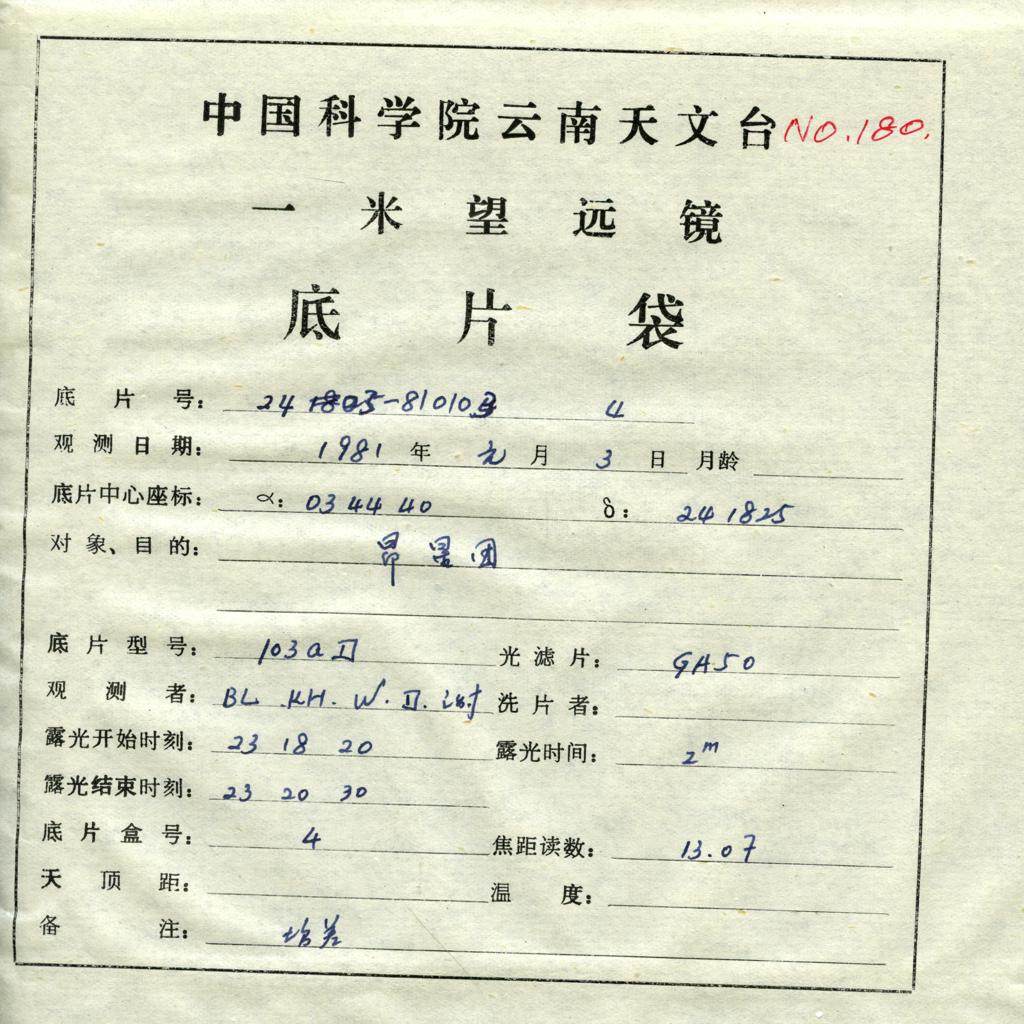 中国科学院云南天文台 NO.180.
一米望远镜
底片袋
底片号： 24 1805-810103 4
观测日期： 1981 年 元 月 3 日 月龄
底片中心座标： α: 03 44 40 δ: 24 18 25
对象、目的： 昴星团
底片型号： 103aD 光滤片： GA50
观测者： BL KH. W. 洗片者：
露光开始时刻： 23 18 20 露光时间： 2m
露光结束时刻： 23 20 30
底片盒号： 4 焦距读数： 13.07
天顶距： 温度：
备注：